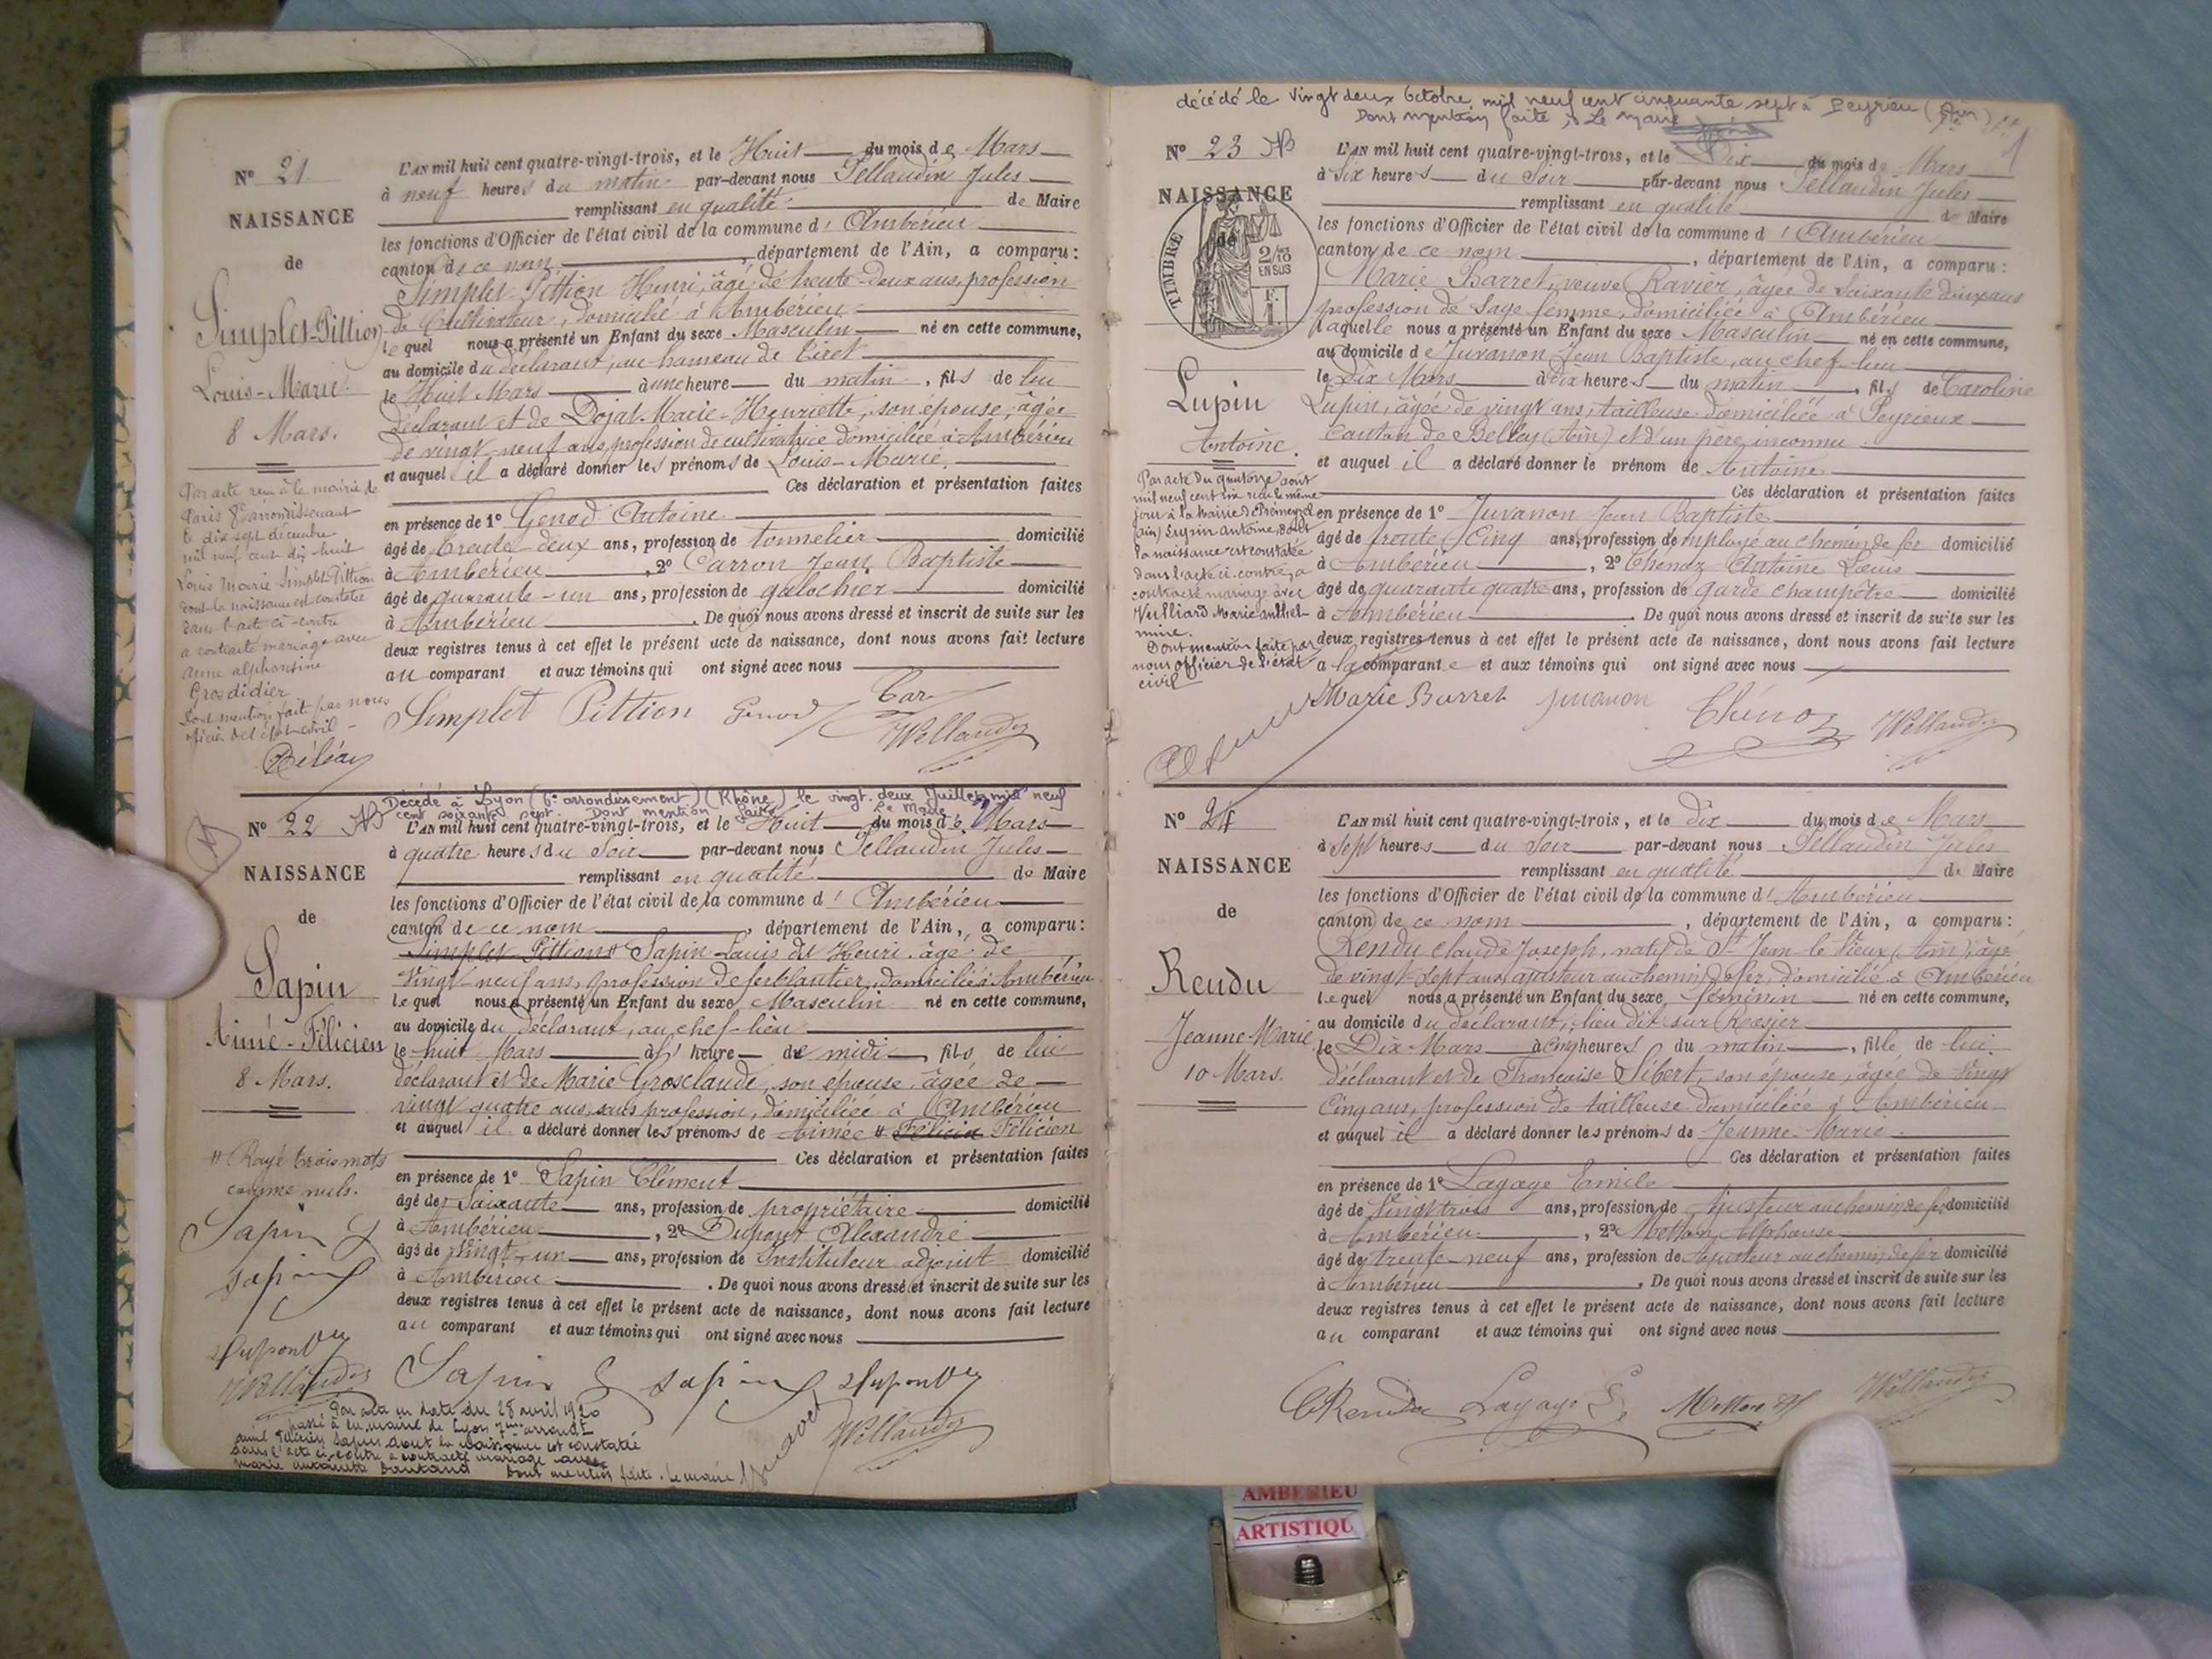 N° 21
NAISSANCE
de
Simplet-Pittion
Louis-Marie
8 Mars.
L'AN mil huit cent quatre-vingt-trois, et le Huit du mois de Mars
à neuf heures du matin par-devant nous Pellaudin Jules
remplissant en qualité de Maire
les fonctions d'Officier de l'état civil de la commune d'Ambérieu
canton de ce nom, département de l'Ain, a comparu:
Simplet-Pittion Henri, âgé de trente-deux ans, profession
de Cultivateur, domicilié à Ambérieu
lequel nous a présenté un Enfant du sexe Masculin né en cette commune,
au domicile du déclarant, au hameau de Tiret
le Huit Mars à une heure du matin, fils de lui
déclarant et de Dojat Marie-Henriette, son épouse, âgée
de vingt-neuf ans, profession de cultivatrice domiciliée à Ambérieu
et auquel il a déclaré donner les prénoms de Louis-Marie.
Ces déclaration et présentation faites
en présence de 1° Genod Antoine
âgé de trente-deux ans, profession de tonnelier domicilié
à Ambérieu, 2° Carron Jean Baptiste
âgé de quarante-un ans, profession de galochier domicilié
à Ambérieu. De quoi nous avons dressé et inscrit de suite sur les
deux registres tenus à cet effet le présent acte de naissance, dont nous avons fait lecture
au comparant et aux témoins qui ont signé avec nous
Simplet Pittion Genod Car
Par acte reçu à la mairie de
Paris 8e arrondissement
le dix sept décembre
mil neuf cent dix huit
Louis Marie Simplet-Pittion
dont la naissance est constatée
dans l'acte ci-contre
a contracté mariage avec
Anne alphonsine
Grosdidier
Dont mention fait par nous
officier de l'état-civil
Décédé à Lyon (6e arrondissement) (Rhône) le vingt-deux Juillet mil neuf
cent soixante sept. Dont mention faite Le Maire
N° 22
NAISSANCE
de
Sapin
Aimé-Félicien
8 Mars.
L'AN mil huit cent quatre-vingt-trois, et le Huit du mois de Mars
à quatre heures du Soir par-devant nous Pellaudin Jules
remplissant en qualité de Maire
les fonctions d'Officier de l'état civil de la commune d'Ambérieu
canton de ce nom, département de l'Ain, a comparu:
Simplet Pittion # Sapin Louis dit Henri, âgé de
vingt-neuf ans, profession de ferblantier, domicilié à Ambérieu
lequel nous a présenté un Enfant du sexe Masculin né en cette commune,
au domicile du déclarant, au chef-lieu
le huit Mars à 1 heure de midi, fils de lui
déclarant et de Marie Grosclaude, son épouse, âgée de
vingt quatre ans, sans profession, domiciliée à Ambérieu
et auquel il a déclaré donner les prénoms de Aimée # Félicie Félicien
Ces déclaration et présentation faites
en présence de 1° Sapin Clément
âgé de Soixante ans, profession de propriétaire domicilié
à Ambérieu, 2° Dupont Alexandre
âgé de vingt-un ans, profession de Instituteur adjoint domicilié
à Ambérieu. De quoi nous avons dressé et inscrit de suite sur les
deux registres tenus à cet effet le présent acte de naissance, dont nous avons fait lecture
au comparant et aux témoins qui ont signé avec nous
# Rayé trois mots
comme nuls.
Sapin
Sapin
Dupont
Sapin Sapin Dupont
Par acte en date du 28 avril 1920
passé à la mairie de Lyon 7me arrondt
aimé Félicien Sapin dont la naissance est constatée
dans l'acte ci-contre a contracté mariage avec
Marie antoinette
Dont mention faite. Le maire
décédé le vingt deux Octobre mil neuf cent cinquante sept à Peyrieu (Ain)
Dont mention faite, Le Maire
N° 23
NAISSANCE
de
TIMBRE
2/10
EN SUS
Lupin
Antoine.
L'AN mil huit cent quatre-vingt-trois, et le Dix du mois de Mars
à Six heures du Soir par-devant nous Pellaudin Jules
remplissant en qualité de Maire
les fonctions d'Officier de l'état civil de la commune d'Ambérieu
canton de ce nom, département de l'Ain, a comparu:
Marie Barret, veuve Ravier, âgée de Soixante douze ans
profession de Sage femme, domiciliée à Ambérieu
laquelle nous a présenté un Enfant du sexe Masculin né en cette commune,
au domicile de Juvanon Jean Baptiste, au chef-lieu
le Dix Mars à dix heures du matin, fils de Caroline
Lupin, âgée de vingt ans, tailleuse domiciliée à Peyrieux
canton de Belley (Ain) et d'un père inconnu
et auquel il a déclaré donner le prénom de Antoine
Ces déclaration et présentation faites
en présence de 1° Juvanon Jean Baptiste
âgé de trente cinq ans, profession de employé au chemin de fer domicilié
à Ambérieu, 2° Chenoz Antoine Louis
âgé de quarante quatre ans, profession de garde champêtre domicilié
à Ambérieu. De quoi nous avons dressé et inscrit de suite sur les
deux registres tenus à cet effet le présent acte de naissance, dont nous avons fait lecture
a la comparante et aux témoins qui ont signé avec nous
Marie Barret Juvanon Chénoz
Par acte du quatorze août
mil neuf cent six reçu le même
jour à la Mairie de Prémeyzel
(Ain) Lupin Antoine, dont
la naissance est constatée
dans l'acte ci-contre, a
contracté mariage avec
Vulliard Marie Anthelmine.
Dont mention faite par
nous Officier de l'état
civil
N° 24
NAISSANCE
de
Rendu
Jeanne-Marie
10 Mars.
L'AN mil huit cent quatre-vingt-trois, et le dix du mois de Mars
à Sept heures du Soir par-devant nous Pellaudin Jules
remplissant en qualité de Maire
les fonctions d'Officier de l'état civil de la commune d'Ambérieu
canton de ce nom, département de l'Ain, a comparu:
Rendu Claude Joseph, natif de St Jean le Vieux (Ain), âgé
de vingt-sept ans, ajusteur au chemin de fer, domicilié à Ambérieu
lequel nous a présenté un Enfant du sexe féminin né en cette commune,
au domicile du déclarant, lieu dit sur Rosier
le Dix Mars à cinq heures du matin, fille de lui
déclarant et de Françoise Sibert, son épouse, âgée de vingt
cinq ans, profession de tailleuse domiciliée à Ambérieu
et auquel il a déclaré donner les prénoms de Jeanne-Marie
Ces déclaration et présentation faites
en présence de 1° Lagaye Emile
âgé de vingt trois ans, profession de Ajusteur au chemin de fer domicilié
à Ambérieu, 2° Metton Alphonse
âgé de trente-neuf ans, profession de Ajusteur au chemin de fer domicilié
à Ambérieu. De quoi nous avons dressé et inscrit de suite sur les
deux registres tenus à cet effet le présent acte de naissance, dont nous avons fait lecture
au comparant et aux témoins qui ont signé avec nous
CRendu Lagaye E. Metton
AMBERIEU
ARTISTIQU